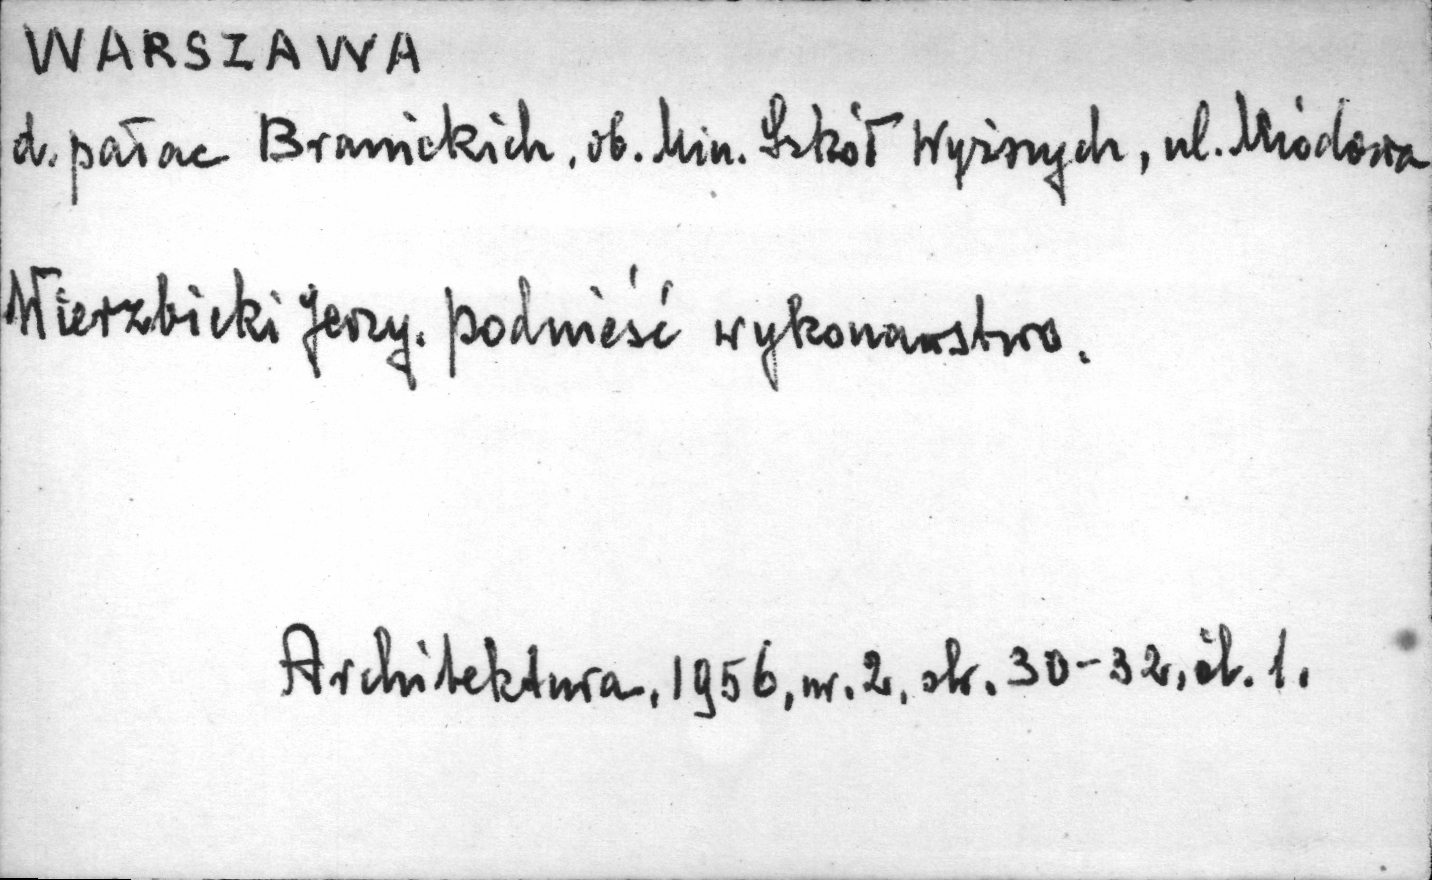 WARSZAWA
d. pałac Branickich, ob. Min. Szkół Wyższych, ul. Miodowa
Wierzbicki Jerzy. Podnieść wykonawstwo.
Architektura, 1956, nr. 2, str. 30-32, il. 1.